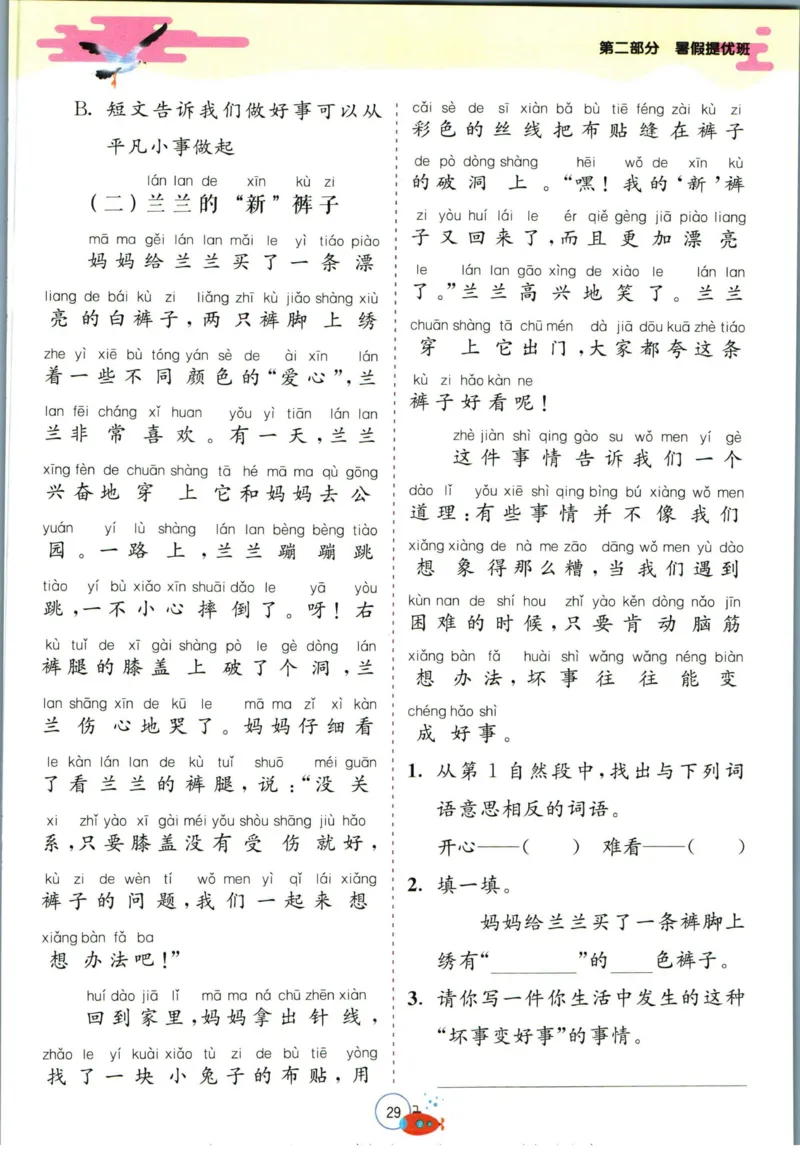 第二部分 暑假提优班
B. 短文告诉我们做好事可以从
平凡小事做起
lán lan de xīn kù zi
(二)兰兰的“新”裤子
mā ma gěi lán lan mǎi le yì tiáo piào
妈妈给兰兰买了一条漂
liang de bái kù zi liǎng zhī kù jiǎo shàng xiù
亮的白裤子,两只裤脚上绣
zhe yì xiē bù tóng yán sè de ài xīn lán
着一些不同颜色的“爱心”,兰
lan fēi cháng xǐ huan yǒu yì tiān lán lan
兰非常喜欢。有一天,兰兰
xīng fèn de chuān shàng tā hé mā ma qù gōng
兴奋地穿上它和妈妈去公
yuán yí lù shàng lán lan bèng bèng tiào
园。一路上,兰兰蹦蹦跳
tiào yí bù xiǎo xīn shuāi dǎo le yā yòu
跳,一不小心摔倒了。呀!右
kù tuǐ de xī gài shàng pò le gè dòng lán
裤腿的膝盖上破了个洞,兰
lan shāng xīn de kū le mā ma zǐ xì kàn
兰伤心地哭了。妈妈仔细看
le kàn lán lan de kù tuǐ shuō méi guān
了看兰兰的裤腿,说:“没关
xi zhǐ yào xī gài méi yǒu shòu shāng jiù hǎo
系,只要膝盖没有受伤就好,
kù zi de wèn tí wǒ men yì qǐ lái xiǎng
裤子的问题,我们一起来想
xiǎng bàn fǎ ba
想办法吧!”
huí dào jiā lǐ mā ma ná chū zhēn xiàn
回到家里,妈妈拿出针线,
zhǎo le yí kuài xiǎo tù zi de bù tiē yòng
找了一块小兔子的布贴,用
cǎi sè de sī xiàn bǎ bù tiē féng zài kù zi
彩色的丝线把布贴缝在裤子
de pò dòng shàng hēi wǒ de xīn kù
的破洞上。“嘿!我的‘新’裤
zi yòu huí lái le ér qiě gèng jiā piào liang
子又回来了,而且更加漂亮
le lán lan gāo xìng de xiào le lán lan
了。”兰兰高兴地笑了。兰兰
chuān shàng tā chū mén dà jiā dōu kuā zhè tiáo
穿上它出门,大家都夸这条
kù zi hǎo kàn ne
裤子好看呢!
zhè jiàn shì qing gào su wǒ men yí gè
这件事情告诉我们一个
dào lǐ yǒu xiē shì qing bìng bú xiàng wǒ men
道理:有些事情并不像我们
xiǎng xiàng de nà me zāo dāng wǒ men yù dào
想象得那么糟,当我们遇到
kùn nan de shí hou zhǐ yào kěn dòng nǎo jīn
困难的时候,只要肯动脑筋
xiǎng bàn fǎ huài shì wǎng wǎng néng biàn
想办法,坏事往往能变
chéng hǎo shì
成好事。
1. 从第1自然段中,找出与下列词
语意思相反的词语。
开心——( ) 难看——( )
2. 填一填。
妈妈给兰兰买了一条裤脚上
绣有“________”的____色裤子。
3. 请你写一件你生活中发生的这种
“坏事变好事”的事情。
29